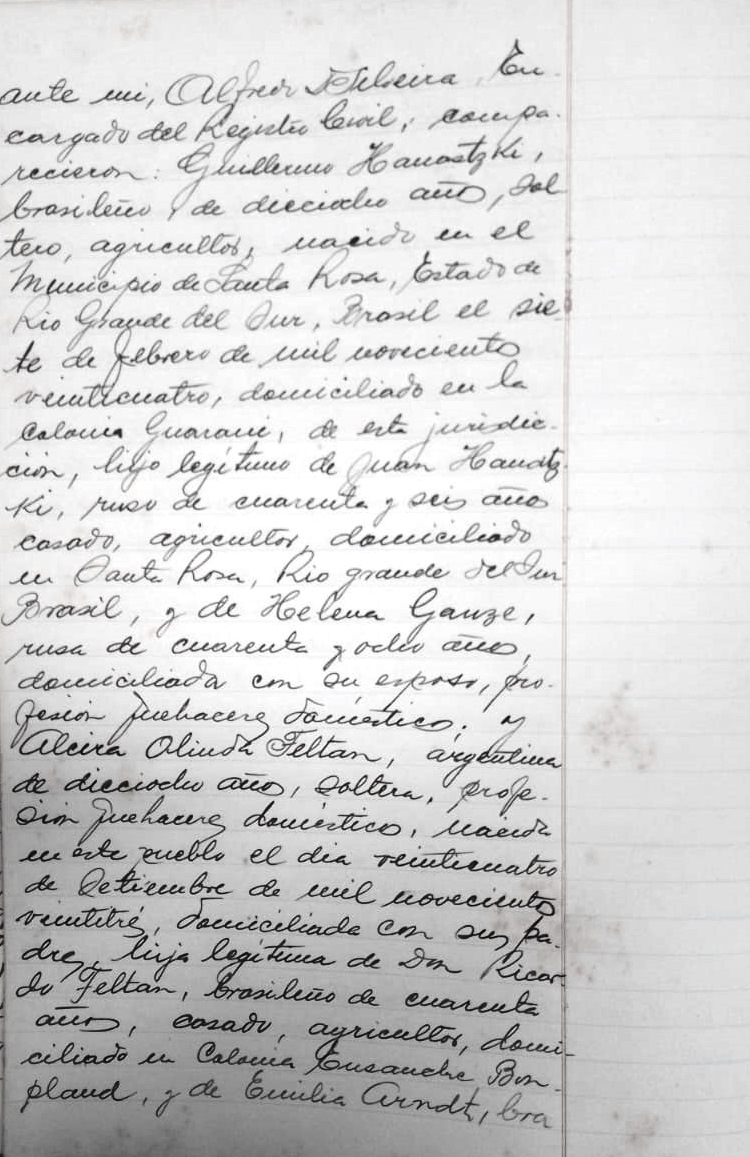 ante mi, Alfredo T. Silveira, En-
cargado del Registro Civil, compa-
recieron: Guillermo Hanatzki,
brasileño, de dicciocho años, sol
tero, agricultor, nacido en el
Municipio de Santa Rosa, Estado de
Rio Grande del Sur, Brasil el sie-
te de febrero de mil novecientos
veinticuatro, domiciliado en la
Colonia Guarani, de esta juridic-
ción, hijo legítimo de Juan Hanatz-
ki, ruso de cuarenta y seis años
casado, agricultor, domiciliado
en Santa Rosa, Rio grande del Sur
Brasil, y de Helena Ganze,
rusa de cuarenta y ocho años,
domiciliada con su esposo, pro-
fesión quehaceres domésticos; y
Alcira Olinda Feltan, argentina
de dicciocho años, soltera, profe-
sión quehaceres domésticos, nacida
en este pueblo el dia veinticuatro
de Setiembre de mil novecientos
veintitrés, domiciliada con sus pa-
dres, hija legítima de Don Ricar-
do Feltan, brasileño de cuarenta
años, casado, agricultor, domi-
ciliado en Colonia Ensanche Bon-
pland, y de Emilia Arndt, bra